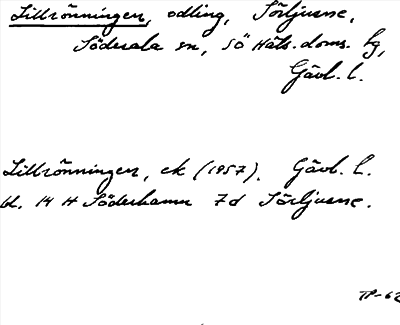 Lillrönningen, odling, Sörljusne,
Söderala sn, SÖ Häls. doms. hg,
Gävl. l.
Lillrönningen, ek (1957). Gävl. l.
bl. 14 H Söderhamn 7d Sörljusne.
TP-62